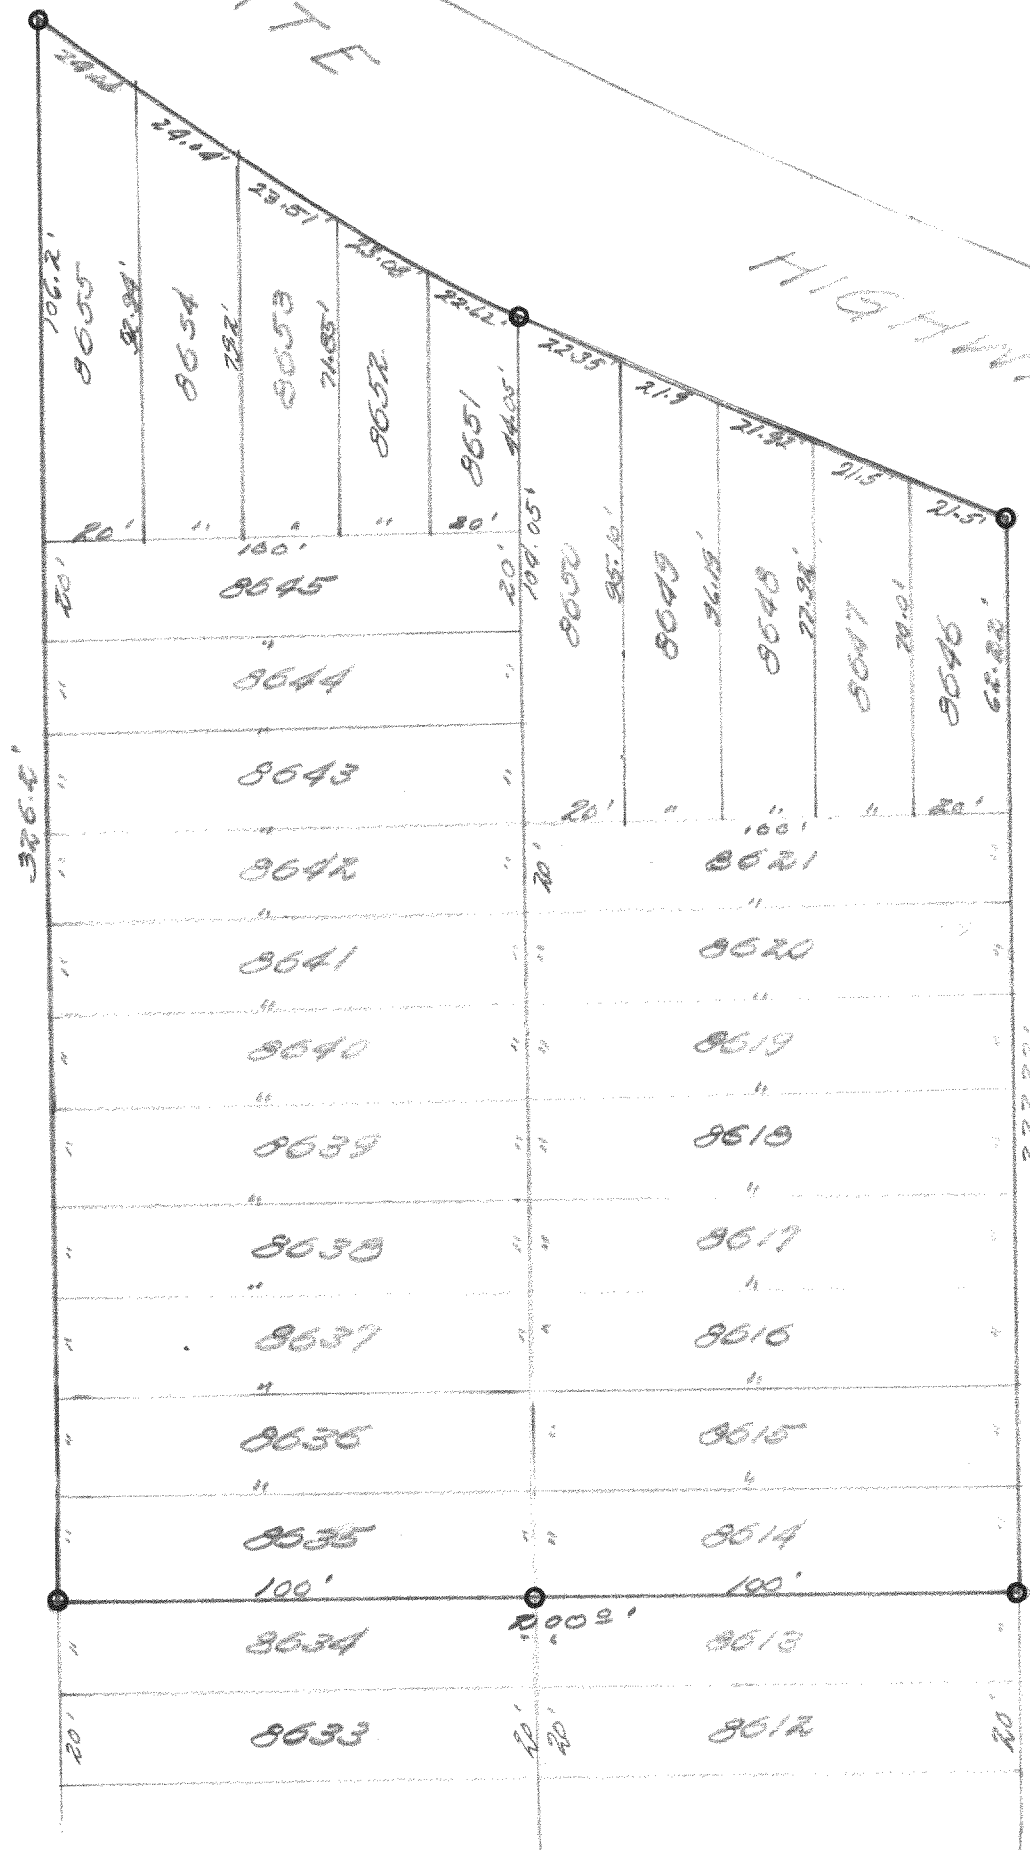 TE
HIGHW
24.04'
23.51'
23.08'
22.62'
22.35
21.9
21.5
21.5'
106.2'
8655
8654
8653
8652
8651
44.05'
20'
"
"
"
20'
100'
20'
8645
20'
104.05'
8650
95.10'
8649
8648
8647
8646
68.22'
"
8644
"
"
8643
"
326.2'
20'
"
"
"
20'
100'
8642
20'
8621
"
8641
"
8620
"
8640
"
8619
"
8639
"
8618
"
8638
"
8617
"
8637
"
8616
"
8636
"
8615
"
8635
8614
100'
100'
200'
8634
8613
20'
8633
20'
20'
8612
20'